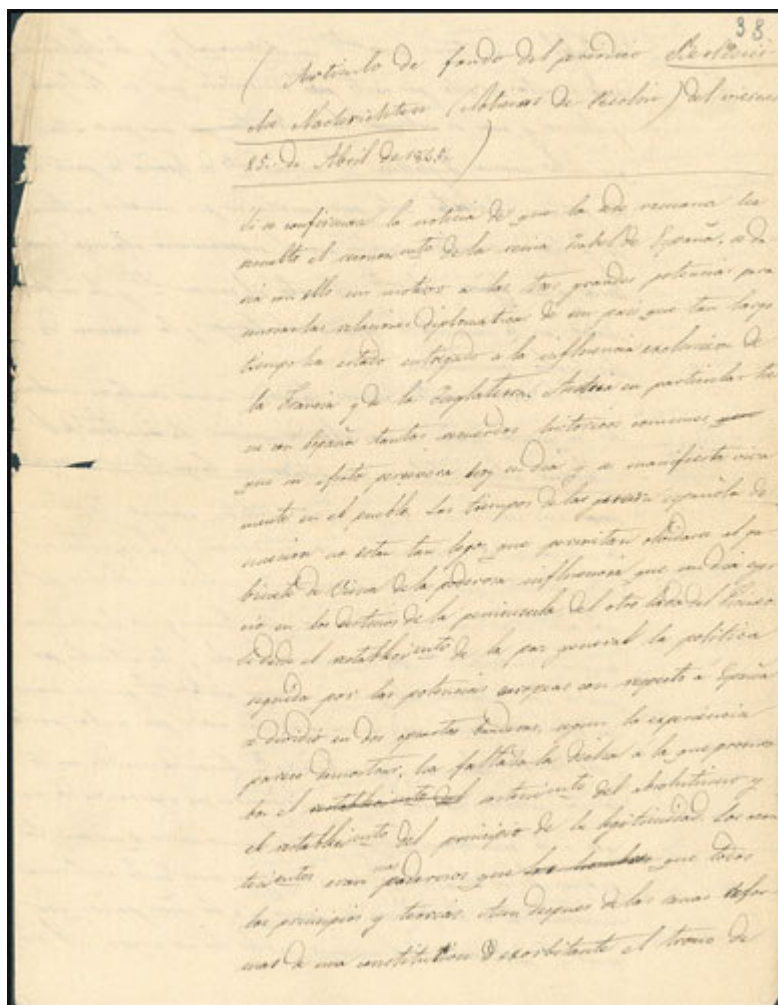 38
( Articulo de fondo del periodico Berliner
Nachrichten (Noticias de Berlin) del viernes
25. de Abril de 1845. )
Si se confirman la noticia de que la ha
resuelto el reconocim.ento de la reina Isabel de España, se da
ria con ello un motivo a las tres grandes potencias para
renovar las relaciones diplomaticas de un pais que tan largo
tiempo ha estado entregado a la influencia exclusiva de
la Francia y de la Inglaterra. Austria en particular tie
ne con España tantos recuerdos historicos comunes que
que su efecto persevera hoy en dia y se manifiesta viva
mente en el pueblo. Los tiempos de la guerra española de
sucesion no estan tan lejos que permitan olvidarse al ga
binete de Viena de la poderosa influencia que un dia ejer
cio en los destinos de la peninsula del otro lado del Pirineo
Desde el restablecim.ento de la paz general la politica
seguida por las potencias europeas con respecto a España
se dividió en dos opuestas banderas, segun la experiencia
parece demostrar, ha faltado la dicha a la que procura
ba el restablecimiento del del absolutismo y
el restablecim.ento del principio de la legitimidad. Los acon
tecim.entos eran mas poderosos que los hombres que todos
los principios y teorias. Aun despues de las refor
mas de una constitucion exorbitante el trono de